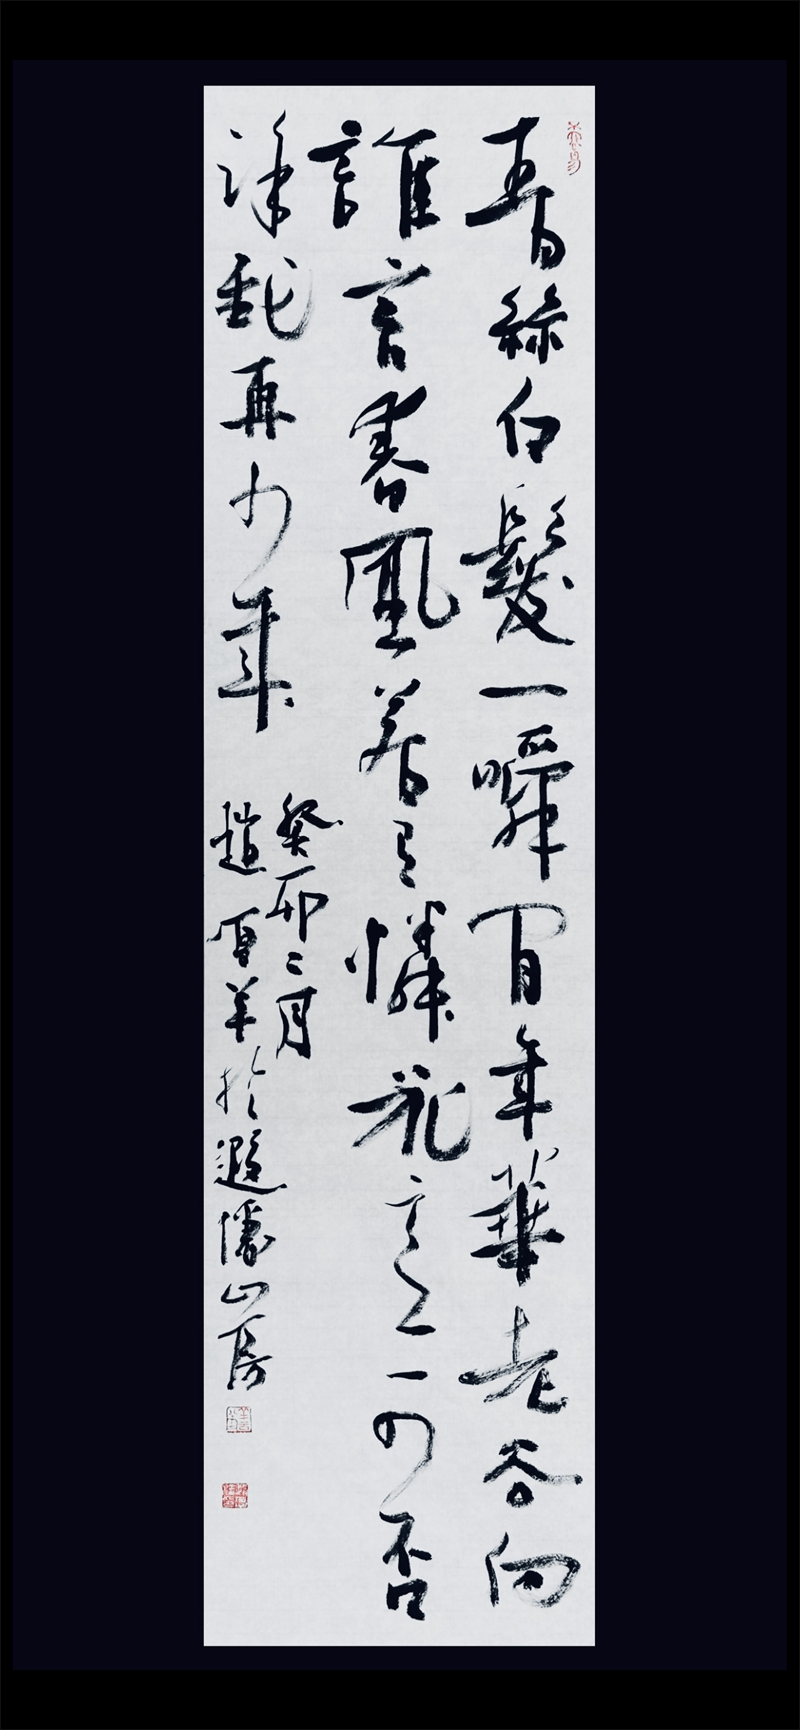 青絲白髮一瞬間年華老去向
誰言春風若有憐花意可否
許我再少年
癸卯二月
趙 羊於 山房